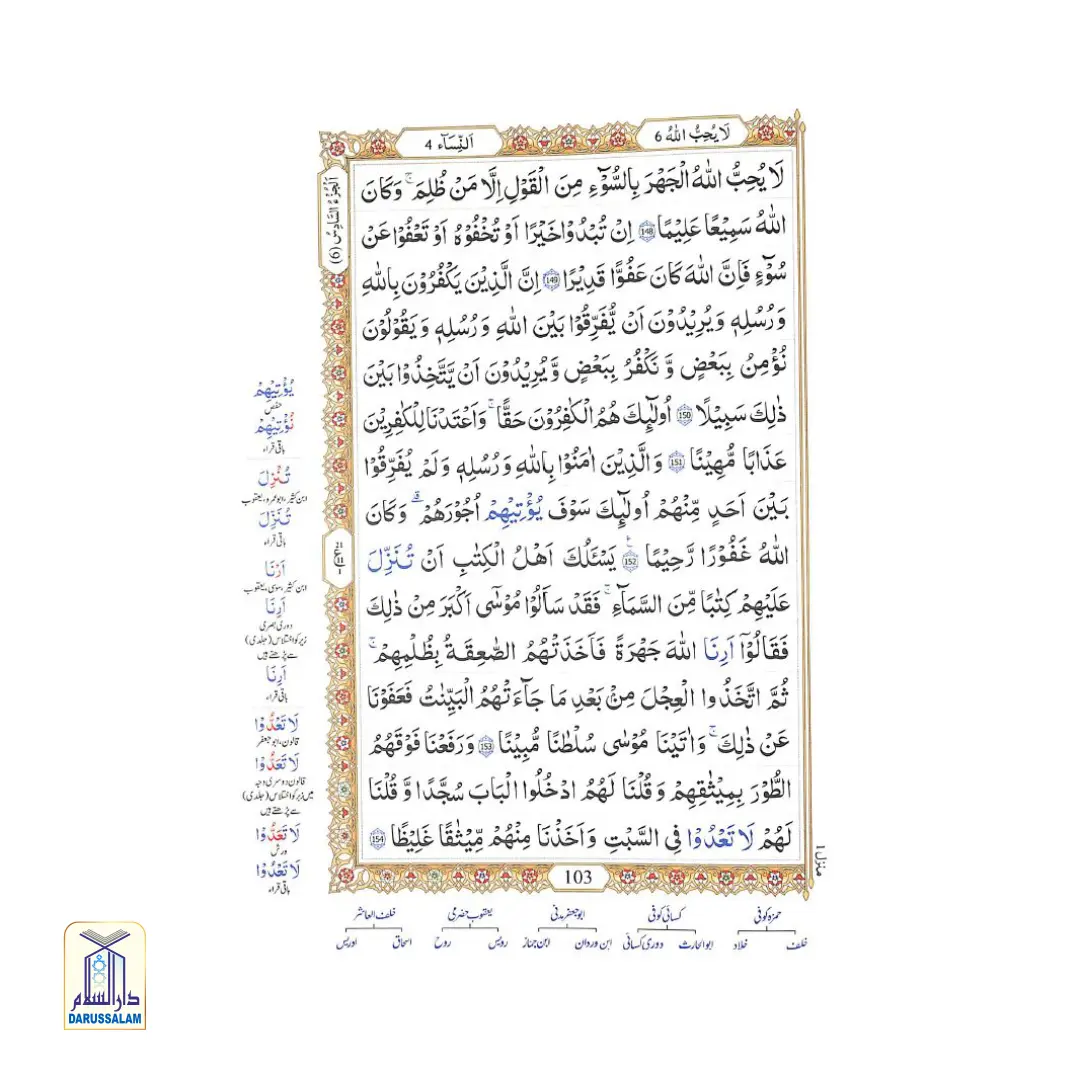 لَا يُحِبُّ اللّٰهُ 6
اَلنِّسَآء 4
اَلْجُزْءُ السَّادِسُ (6)
لَا يُحِبُّ اللّٰهُ الْجَهْرَ بِالسُّوْٓءِ مِنَ الْقَوْلِ اِلَّا مَنْ ظُلِمَ ۚ وَ كَانَ
اللّٰهُ سَمِيْعًا عَلِيْمًا 148 اِنْ تُبْدُوْا خَيْرًا اَوْ تُخْفُوْهُ اَوْ تَعْفُوْا عَنْ
سُوْٓءٍ فَاِنَّ اللّٰهَ كَانَ عَفُوًّا قَدِيْرًا 149 اِنَّ الَّذِيْنَ يَكْفُرُوْنَ بِاللّٰهِ
وَ رُسُلِهٖ وَ يُرِيْدُوْنَ اَنْ يُّفَرِّقُوْا بَيْنَ اللّٰهِ وَ رُسُلِهٖ وَ يَقُوْلُوْنَ
نُؤْمِنُ بِبَعْضٍ وَّ نَكْفُرُ بِبَعْضٍ وَّ يُرِيْدُوْنَ اَنْ يَّتَّخِذُوْا بَيْنَ
ذٰلِكَ سَبِيْلًا 150 اُولٰٓئِكَ هُمُ الْكٰفِرُوْنَ حَقًّا ۚ وَ اَعْتَدْنَا لِلْكٰفِرِيْنَ
عَذَابًا مُّهِيْنًا 151 وَ الَّذِيْنَ اٰمَنُوْا بِاللّٰهِ وَ رُسُلِهٖ وَ لَمْ يُفَرِّقُوْا
بَيْنَ اَحَدٍ مِّنْهُمْ اُولٰٓئِكَ سَوْفَ يُؤْتِيْهِمْ اُجُوْرَهُمْ ؕ وَ كَانَ
اللّٰهُ غَفُوْرًا رَّحِيْمًا 152 يَسْـَٔلُكَ اَهْلُ الْكِتٰبِ اَنْ تُنَزِّلَ
عَلَيْهِمْ كِتٰبًا مِّنَ السَّمَآءِ ۚ فَقَدْ سَاَلُوْا مُوْسٰٓى اَكْبَرَ مِنْ ذٰلِكَ
فَقَالُوْۤا اَرِنَا اللّٰهَ جَهْرَةً فَاَخَذَتْهُمُ الصّٰعِقَةُ بِظُلْمِهِمْ ۚ
ثُمَّ اتَّخَذُوا الْعِجْلَ مِنْۢ بَعْدِ مَا جَآءَتْهُمُ الْبَيِّنٰتُ فَعَفَوْنَا
عَنْ ذٰلِكَ ۚ وَ اٰتَيْنَا مُوْسٰى سُلْطٰنًا مُّبِيْنًا 153 وَ رَفَعْنَا فَوْقَهُمُ
الطُّوْرَ بِمِيْثٰقِهِمْ وَ قُلْنَا لَهُمُ ادْخُلُوا الْبَابَ سُجَّدًا وَّ قُلْنَا
لَهُمْ لَا تَعْدُوْا فِي السَّبْتِ وَ اَخَذْنَا مِنْهُمْ مِّيْثٰقًا غَلِيْظًا 154
يُؤْتِيْهِمْ
حفص
نُؤْتِيْهِمْ
باقی قراء
تُنْزِلَ
ابن کثیر، ابوعمرو، یعقوب
تُنَزِّلَ
باقی قراء
اَرْنَا
ابن کثیر، سوسی، یعقوب
اَرِنَا
دوری بصری
زیر کو اختلاس (جلدی)
سے پڑھتے ہیں
اَرِنَا
باقی قراء
لَا تَعْدُّوْا
قالون، ابوجعفر
لَا تَعَدُّوْا
قالون دوسری وجہ
میں زبر کو اختلاس (جلدی)
سے پڑھتے ہیں
لَا تَعَدُّوْا
ورش
لَا تَعْدُوْا
باقی قراء
منزل ۱
103
حمزہ کوفی کسائی کوفی ابوجعفر مدنی یعقوب حضرمی خلف العاشر
خلف خلاد ابوالحارث دوری کسائی ابن وردان ابن جماز رویس روح اسحاق ادریس
دارالسلام
DARUSSALAM